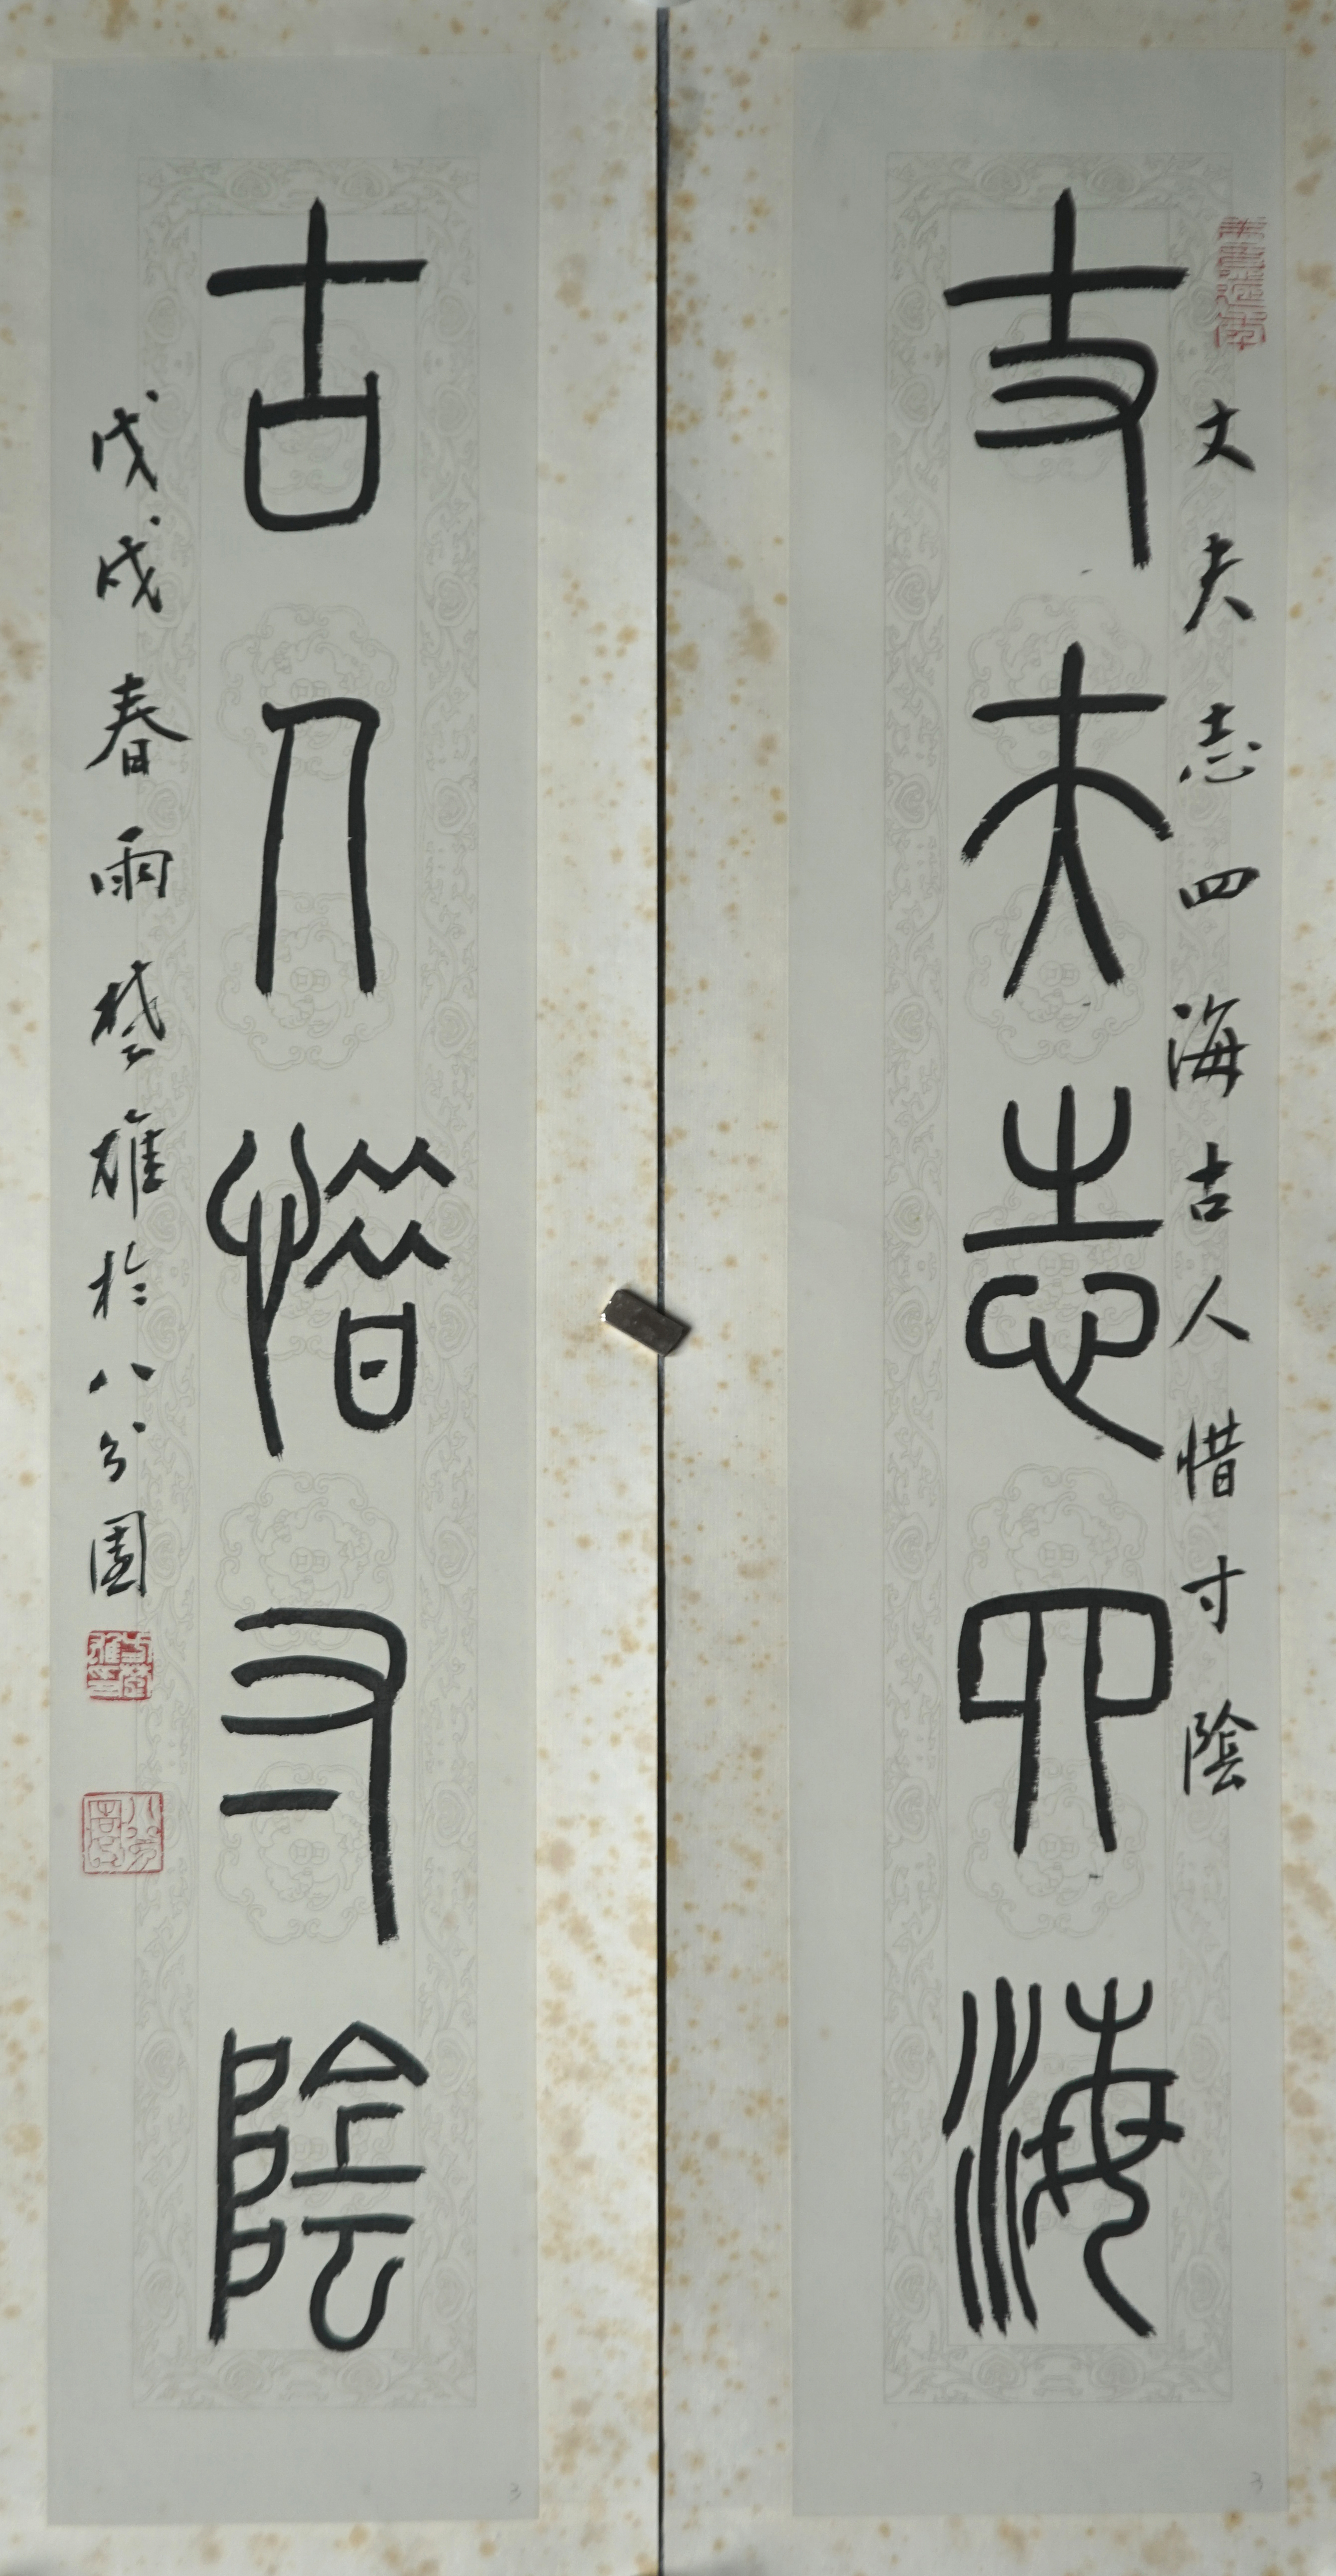 丈夫志四海
丈夫志四海古人惜寸陰
古人惜寸陰
戊戌春雨楚雄於八分園